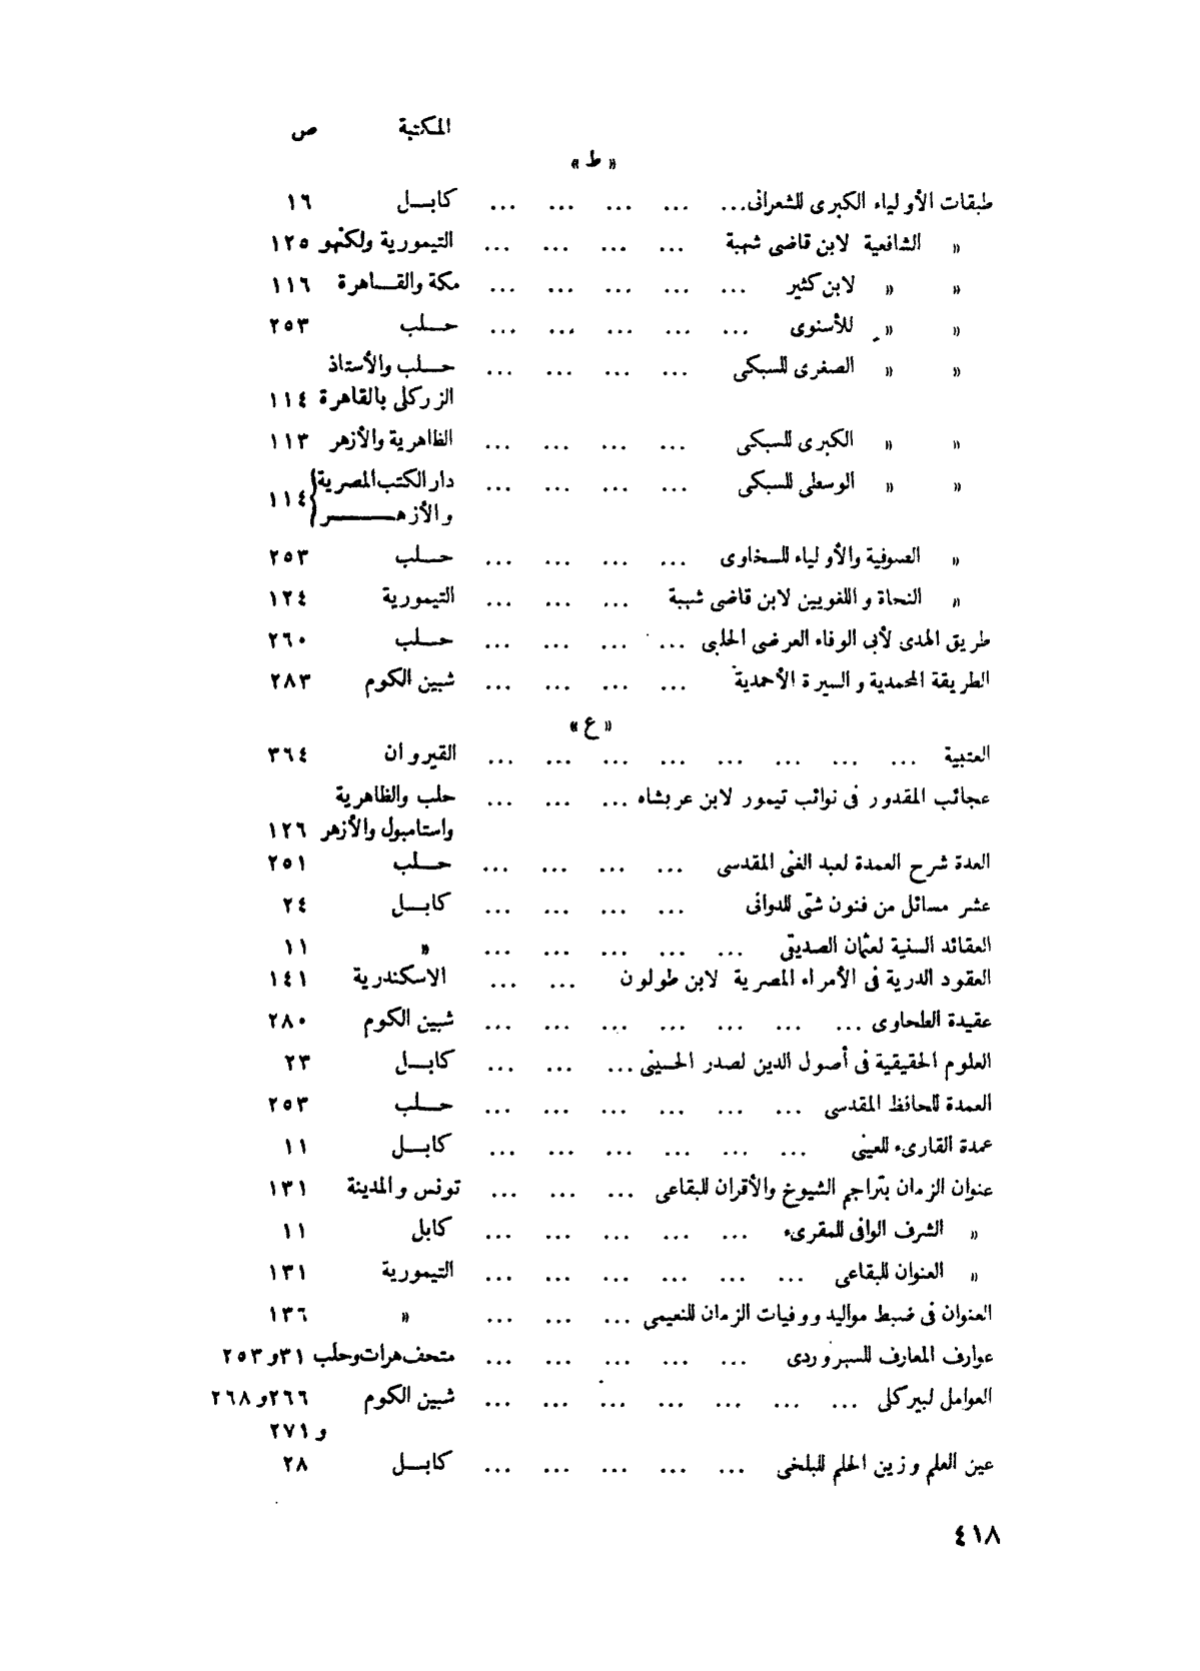 المكتبة ص
« ط »
طبقات الأولياء الكبرى للشعرانى ... ... ... ... ... كابــل ١٦
« الشافعية لابن قاضى شهبة ... ... ... ... التيمورية ولكنهو ١٢٥
« « لابن كثير ... ... ... ... ... مكة والقــاهرة ١١٦
« « للأسنوى ... ... ... ... ... حــلب ٢٥٣
« « الصغرى للسبكى ... ... ... ... حــلب والأستاذ
الزركلى بالقاهرة ١١٤
« « الكبرى للسبكى ... ... ... ... الظاهرية والأزهر ١١٣
« « الوسطى للسبكى ... ... ... ... دار الكتب المصرية
والأزهــــر } ١١٤
« الصوفية والأولياء للسخاوى ... ... ... ... حــلب ٢٥٣
« النحاة واللغويين لابن قاضى شهبة ... ... ... التيمورية ١٢٤
طريق الهدى لأبى الوفاء العرضى الحلبى ... ... ... ... حــلب ٢٦٠
الطريقة المحمدية والسيرة الأحمدية ... ... ... ... شبين الكوم ٢٨٣
« ع »
العتبية ... ... ... ... ... ... ... ... القيروان ٣٦٤
عجائب المقدور فى نوائب تيمور لابن عربشاه ... ... ... حلب والظاهرية
واستامبول والأزهر ١٢٦
العدة شرح العمدة لعبد الغنى المقدسى ... ... ... ... حــلب ٢٥١
عشر مسائل من فنون شتى للدوانى ... ... ... ... كابــل ٢٤
العقائد السنية لعثمان الصديقى ... ... ... ... ... « ١١
العقود الدرية فى الأمراء المصرية لابن طولون ... ... الاسكندرية ١٤١
عقيدة الطحاوى ... ... ... ... ... ... ... شبين الكوم ٢٨٠
العلوم الحقيقية فى أصول الدين لصدر الحسينى ... ... ... كابــل ٢٣
العمدة للحافظ المقدسى ... ... ... ... ... ... حــلب ٢٥٣
عمدة القارىء للعينى ... ... ... ... ... ... كابــل ١١
عنوان الزمان بتراجم الشيوخ والأقران للبقاعى ... ... ... تونس والمدينة ١٣١
« الشرف الوافى للمقرىء ... ... ... ... ... كابل ١١
« العنوان للبقاعى ... ... ... ... ... ... التيمورية ١٣١
العنوان فى ضبط مواليد ووفيات الزمان للنعيمى ... ... ... « ١٣٦
عوارف المعارف للسهروردى ... ... ... ... ... متحف هرات وحلب ٣١ و ٢٥٣
العوامل لبيركلى ... ... ... ... ... ... ... شبين الكوم ٢٦٦ و ٢٦٨
و ٢٧١
عين العلم وزين الحلم للبلخى ... ... ... ... ... كابــل ٢٨
٤١٨